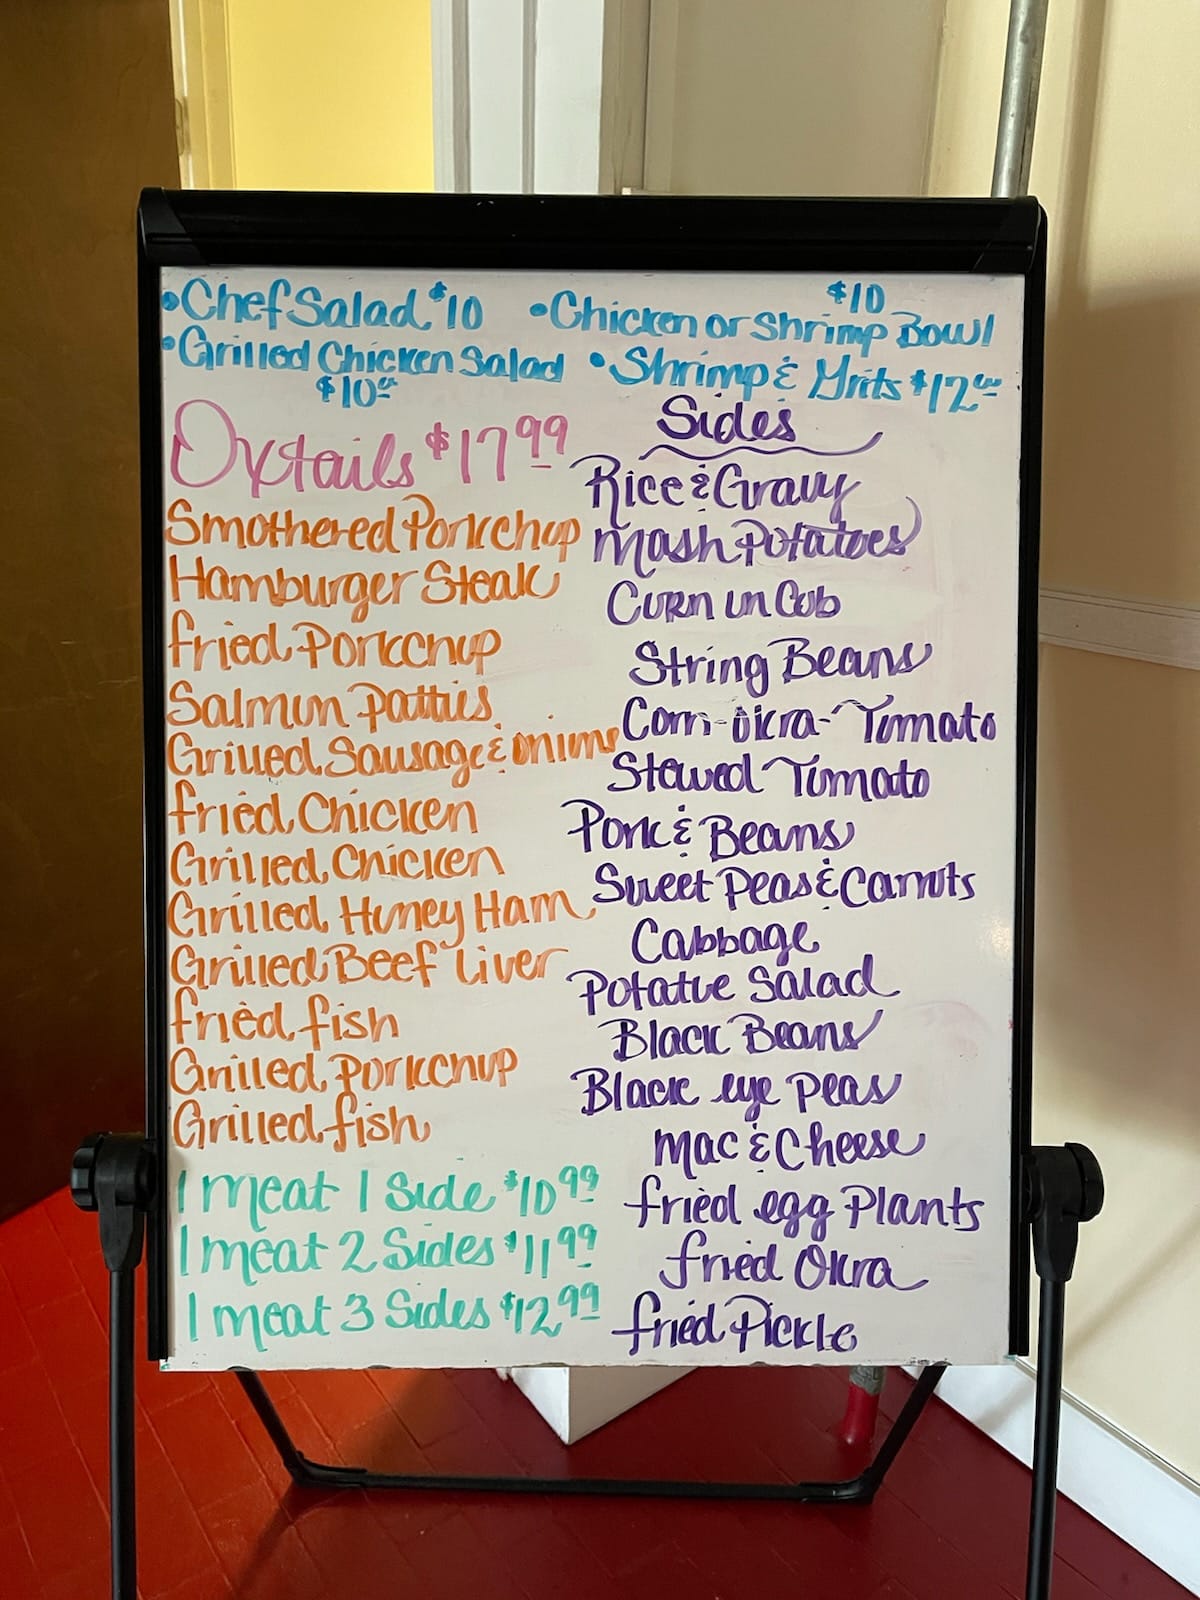 • Chef Salad $10
• Grilled Chicken Salad
$10.00
• Chicken or Shrimp Bowl
$10
• Shrimp & Grits $12.00
Oxtails $17.99
Smothered Porkchop
Hamburger Steak
Fried Porkchop
Salmon Patties
Grilled Sausage & Onions
Fried Chicken
Grilled Chicken
Grilled Honey Ham
Grilled Beef Liver
Fried Fish
Grilled Porkchop
Grilled Fish
1 Meat 1 Side $10.99
1 Meat 2 Sides $11.99
1 Meat 3 Sides $12.99
Sides
Rice & Gravy
Mash Potatoes
Corn on Cob
String Beans
Corn-Okra-Tomato
Stewed Tomato
Pork & Beans
Sweet Peas & Carrots
Cabbage
Potatoe Salad
Black Beans
Black eye Peas
Mac & Cheese
Fried egg Plants
Fried Okra
Fried Pickle